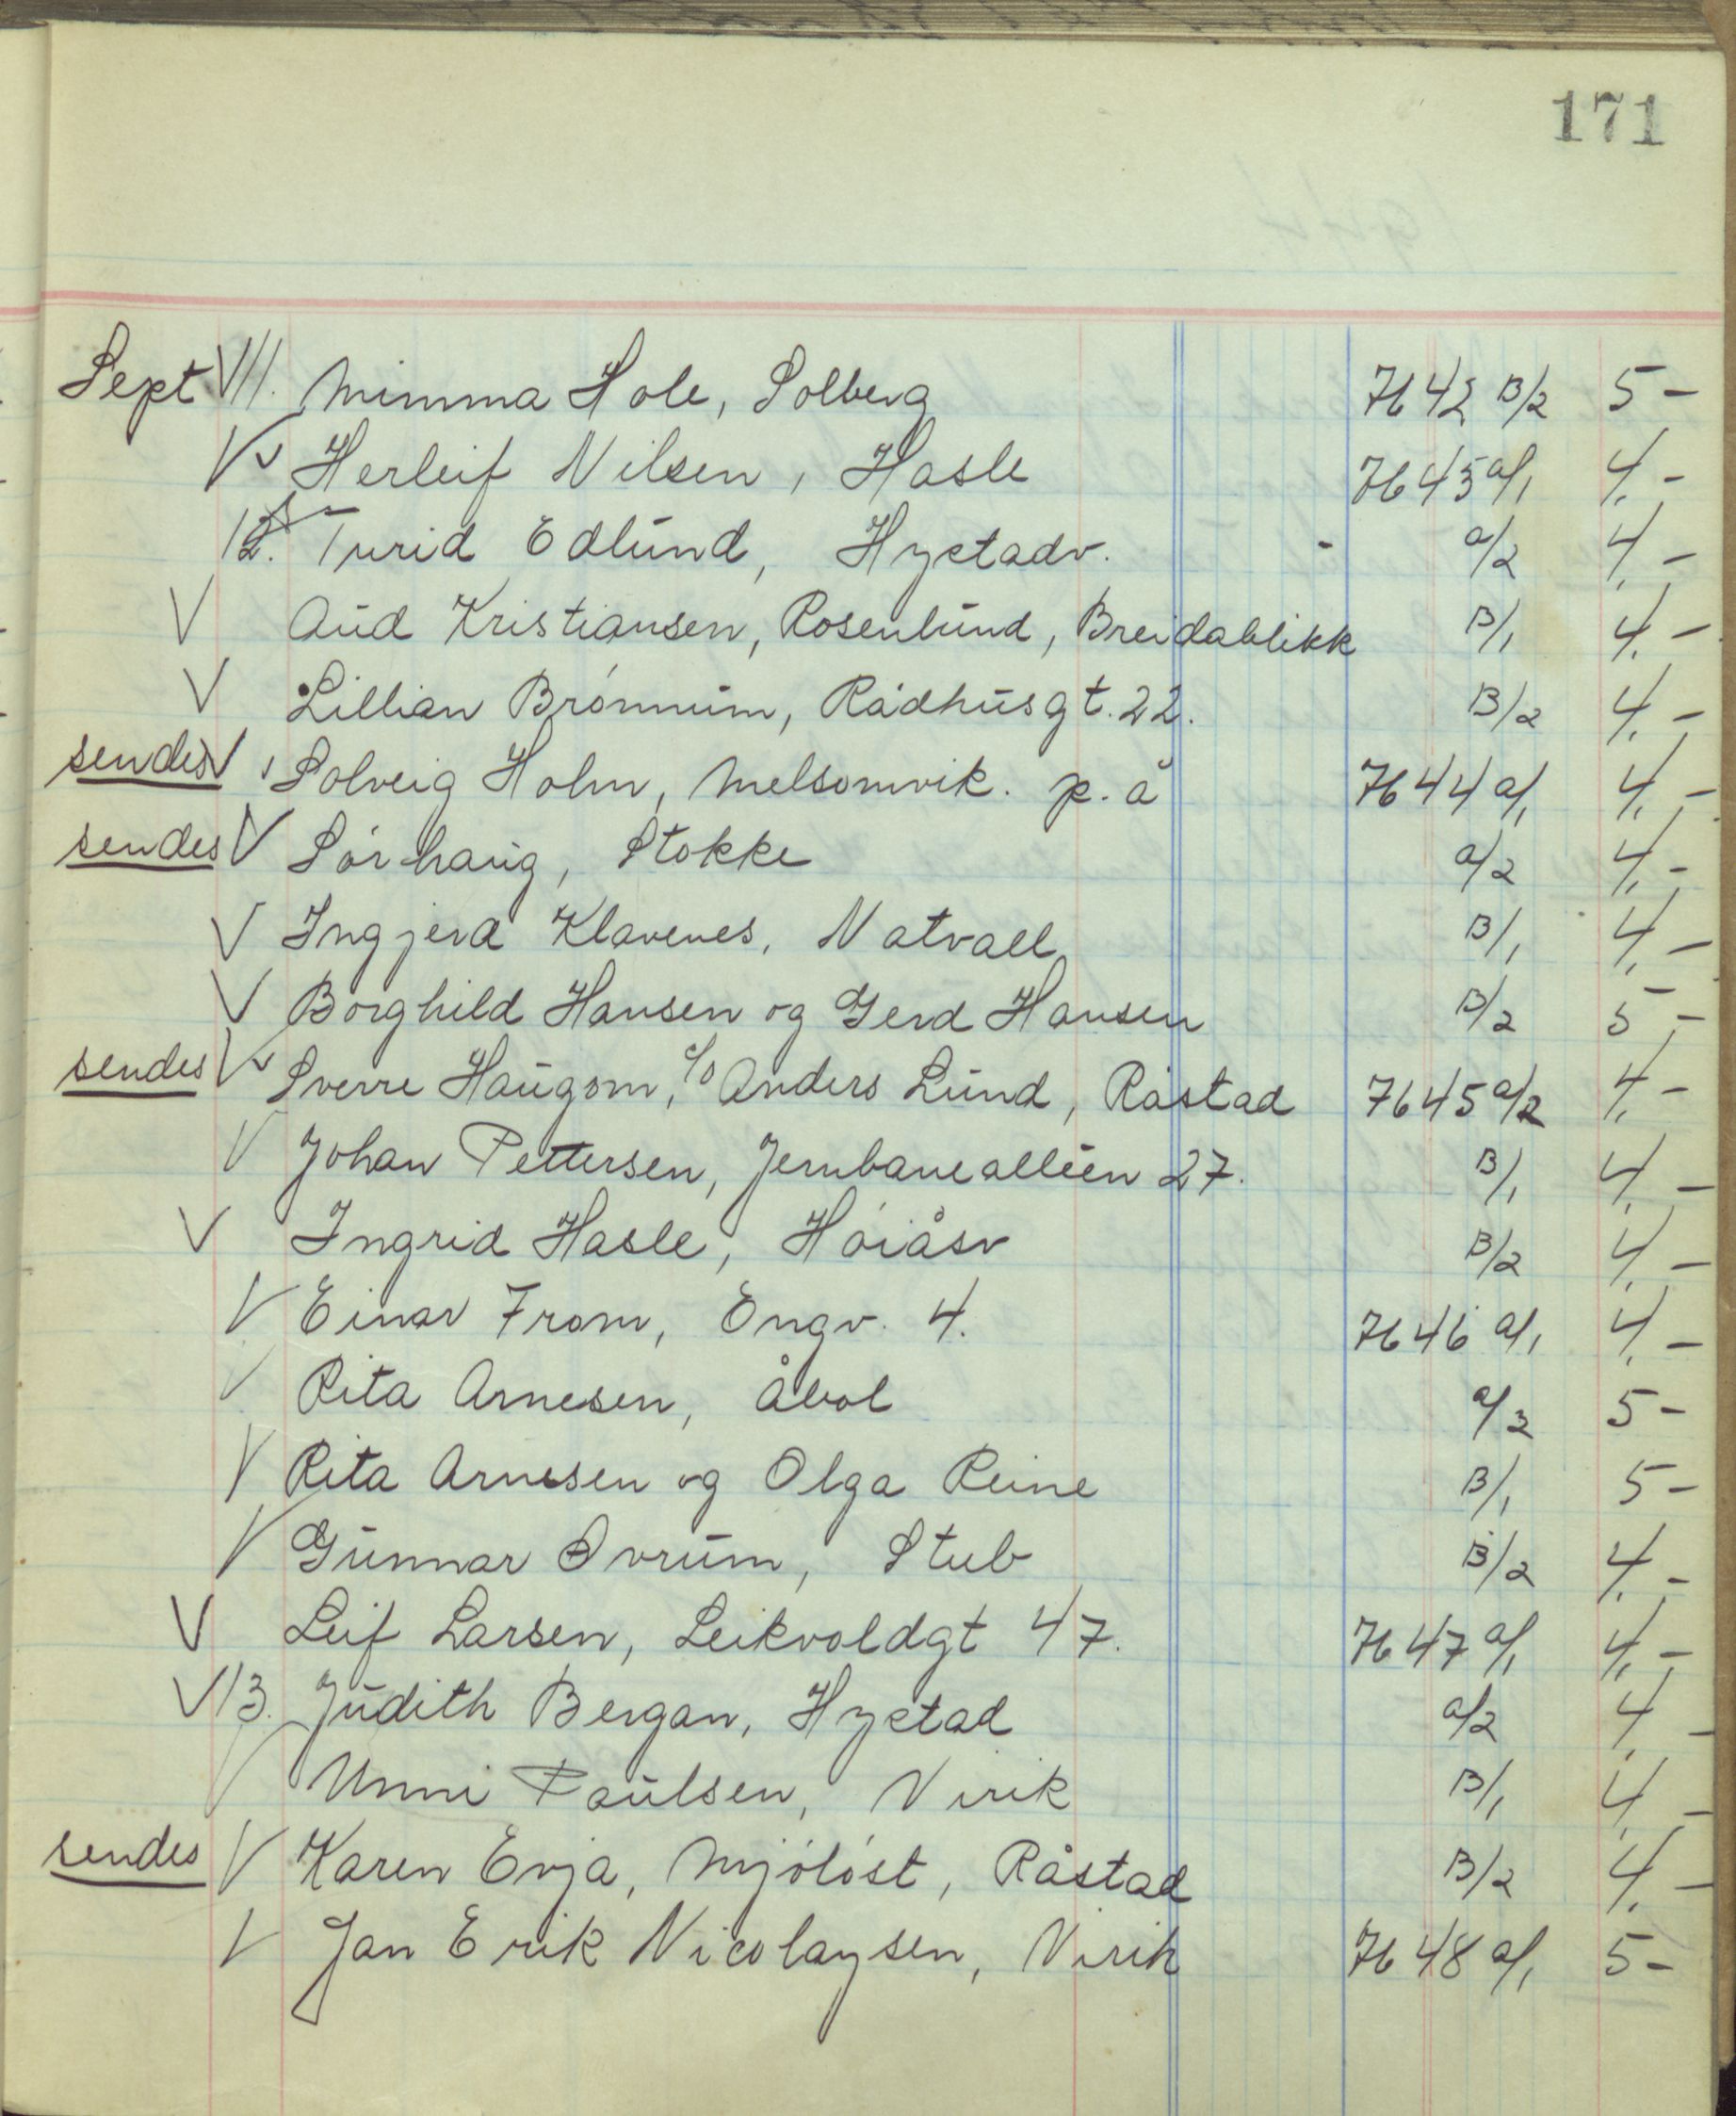 171
Sept V 11. Mimma Hole, Solberg 7642 B/2 5-
V Herleif Nilsen, Hasle 7643 a/1 4,-
12. Turid Edlund, Hystadv. - a/2 4,-
V Aud Kristiansen, Rosenlund, Breidablikk B/1 4,-
V Lillian Brønnum, Rådhusgt. 22. B/2 4,-
sendes V Solveig Holm, Melsomvik. p. å 7644 a/1 4,-
sendes V Sørhaug, Stokke a/2 4,-
V Ingjerd Klavenes, Natvall B/1 4,-
V Borghild Hansen og Gerd Hansen B/2 5-
sendes V Sverre Haugom, c/o Anders Lund, Råstad 7645 a/2 4,-
V Johan Pettersen, Jernbanealléen 27. B/1 4,-
V Ingrid Hasle, Høiåsv B/2 4,-
V Einar From, Engv. 4. 7646 a/1 4,-
V Rita Arnesen, Åbol a/2 5-
V Rita Arnesen og Olga Reine B/1 5-
V Gunnar Øvrum, Stub B/2 4,-
V Leif Larsen, Leikvoldgt 47. 7647 a/1 4,-
V 13. Judith Bergan, Hystad a/2 4,-
V Unni Paulsen, Virik B/1 4,-
sendes V Karen Evja, Mjøløst, Råstad B/2 4,-
V Jan Erik Nicolaysen, Virik 7648 a/1 5-